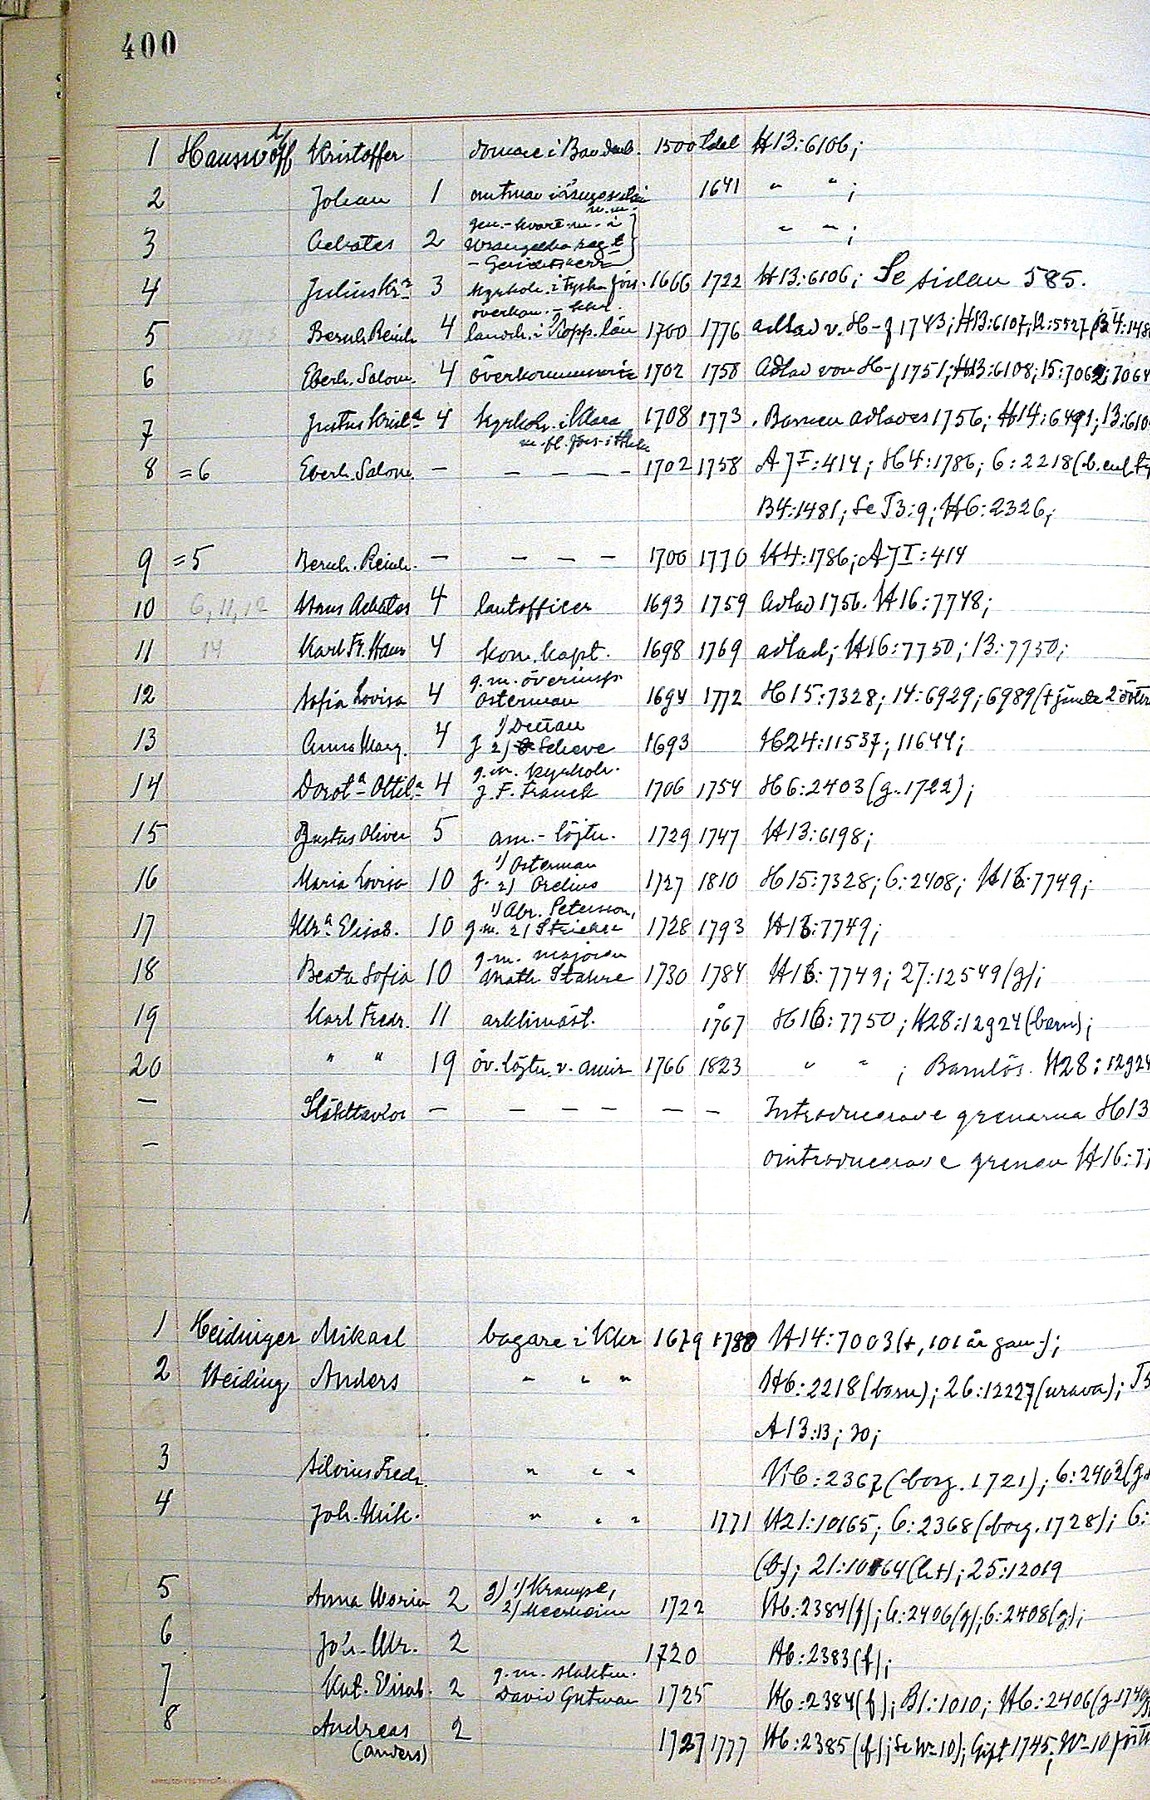 400
1 Hauswolff Kristoffer 1500 talet H13:6106;
2 Johan 1 1641 " " ;
3 Achates 2 gen.-kvart.m. i " " ;
4 Julius Kr:r 3 kyrkoh. i tyska förs. 1666 1722 H13:6106; Se sidan 585.
5 Bernh. Reinh. 4 landsh. i Kopp. län 1700 1776 adlad v. H-f 1743; H13:6107; 12:5527; B4:148
6 Eberh. Salom. 4 överkommissarie 1702 1758 Adlad von H-f 1751; H13:6108; 15:7062; 7064
7 Justus Krist:a 4 kyrkoh. i Klara 1708 1773 . Barnen adlades 1756; H14:6491; 13:610
m. fl. förs. i Sthlm
8 =6 Eberh. Salom. — — — — — 1702 1758 A7I:414; H4:1786; 6:2218 (b.
B4:1481; Se J3:9; H6:2326;
9 =5 Bernh. Reinh. — — — — 1700 1770 H4:1786; A7I:414
10 6, 11, 12 Hans Achates 4 lantofficer 1693 1759 adlad 1756. H16:7748;
11 14 Karl Fr. Hans 4 kon. kapt. 1698 1769 adlad; H16:7750; 13:7750;
12 Sofia Lovisa 4 g.m. överinsp. Osterman 1694 1772 H15:7328; 14:6929; 6989 (+ jämte 2 döttr
13 Anna Marg. 4 g 1) 2) Scheve 1693 H24:11537; 11644;
14 Dorot:a Ottil:a 4 g.m. kyrkoh. J. F. Franck 1706 1754 H6:2403 (g. 1722);
15 Justus Oliver 5 am.-löjtn. 1729 1747 H13:6198;
16 Maria Lovisa 10 g. 1) Osterman 2) Orelius 1727 1810 H15:7328; 6:2408; H16:7749;
17 Ulr:a Elisab. 10 g.m. 1) Abr. Peterson, 2) 1728 1793 H16:7749;
18 Beata Sofia 10 g.m. majoren Math. Stahre 1730 1784 H16:7749; 27:12549 (g);
19 Karl Fredr. 11 arklimäst. 1767 H16:7750; H28:12924 (barn);
20 " " 19 öv. löjtn. v. amir 1766 1823 " " ; Barnlös. H28:12924
— Släkttavlor — — — — — — Introducerade grenarna H13
— ointroducerade grenen H16:77
1 Heidinger Mikael bagare i Kkr 1679 1780 H14:7003 (+, 101 år gam.);
2 Heiding Anders " " " H6:2218 (barn); 26:12227 (urava); J5
A13:13; 30;
3 Silvius Fredr. " " " H6:2367 (borg. 1721); 6:2402 (g
4 Joh. Mik. " " " 1771 H21:10165; 6:2368 (borg. 1728); 6:
(b); 21:10164 (b.+); 25:12019
5 Anna Maria 2 g) 1) Krampe, 2) 1722 H6:2384 (f); 6:2406 (g); 6:2408 (g);
6 Joh. Ulr. 2 1720 H6:2383 (f);
7 Kat. Elisab. 2 g.m. slaktm. David Gutman 1725 H6:2384 (f); B1:1010; H6:2406 (g 1740
8 Andreas 2 1727 1777 H6:2385 (f); Se N=10); Gift 1745; N=10
(Anders)